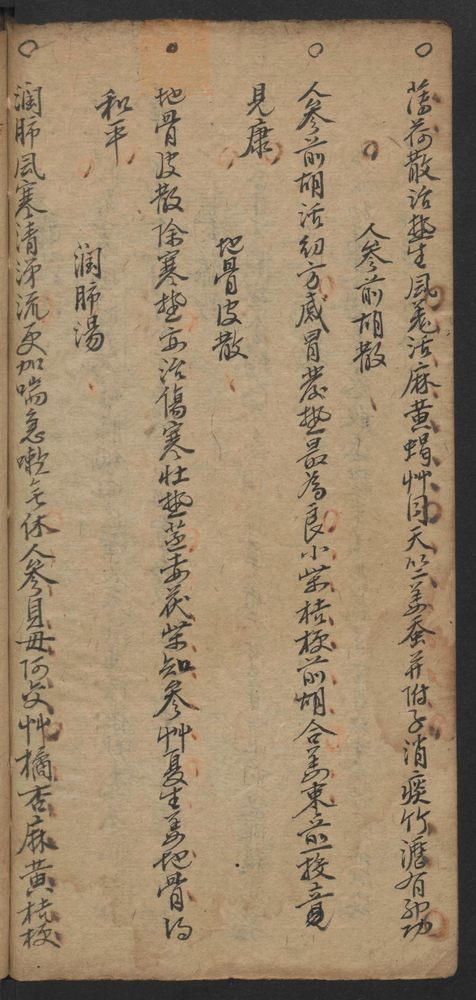 薄荷散治热生風羌活麻黄蝎艸同天竺姜蚕并附子消痰竹瀝有神功
人參前胡散
人參前胡活幼方感冒发热最為良小柴桔梗前胡合姜枣煎投立
見康
地骨皮散
地骨皮散除寒热亦治傷寒壮热蒸赤茯柴知參艸夏生姜地骨得
和平
潤肺湯
潤肺風寒清涕流更加喘急嗽无休人參貝母阿交艸橘杏麻黄桔梗